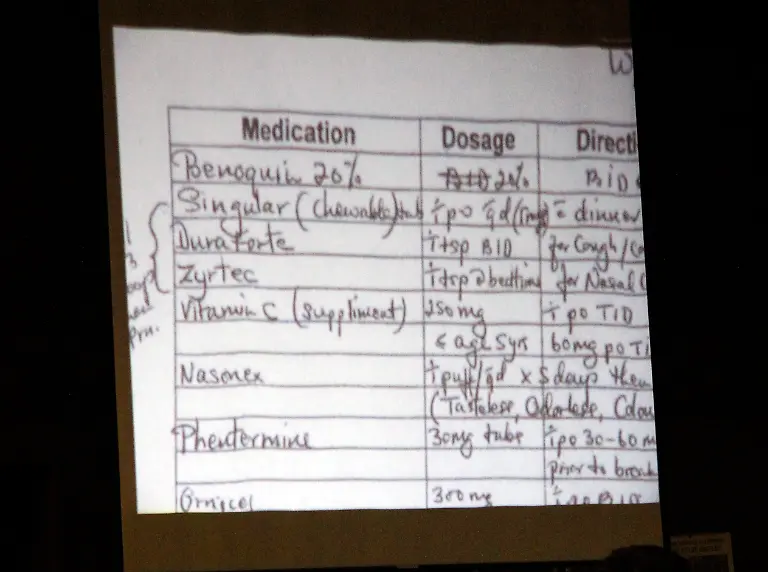 W
Medication Dosage Directi
Benoquin 20% 20% BID
Singular (chewable) tab i po qd dinner
Duraforte i tsp BID for Cough/
Zyrtec i tsp @ bedtime for Nasal C
Vitamin C (suppliment) 250mg i po TID
< age 5yrs 60mg po Ti
Nasonex i puff/qd x 5 days then
(Tasteless, Odorless,
Phentermine 30mg tube i po 30-60 m
prior to break
300mg
prn.